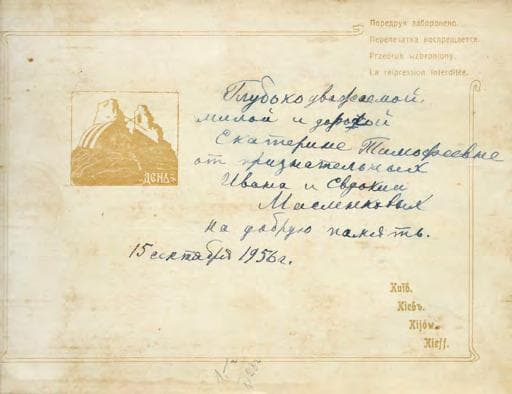 Передрук заборонено.
Перепечатка воспрещается.
Przedruk wzbroniony.
La réimpression interdite.
Глубокоуважаемой,
милой и дорогой
Екатерине Тимофеевне
от признательных
Ивана и Евдокии
Масленковых
на добрую память.
15 сентября 1956 г.
ДЕНЬ
Київ.
Кіевъ.
Kijów.
Kieff.